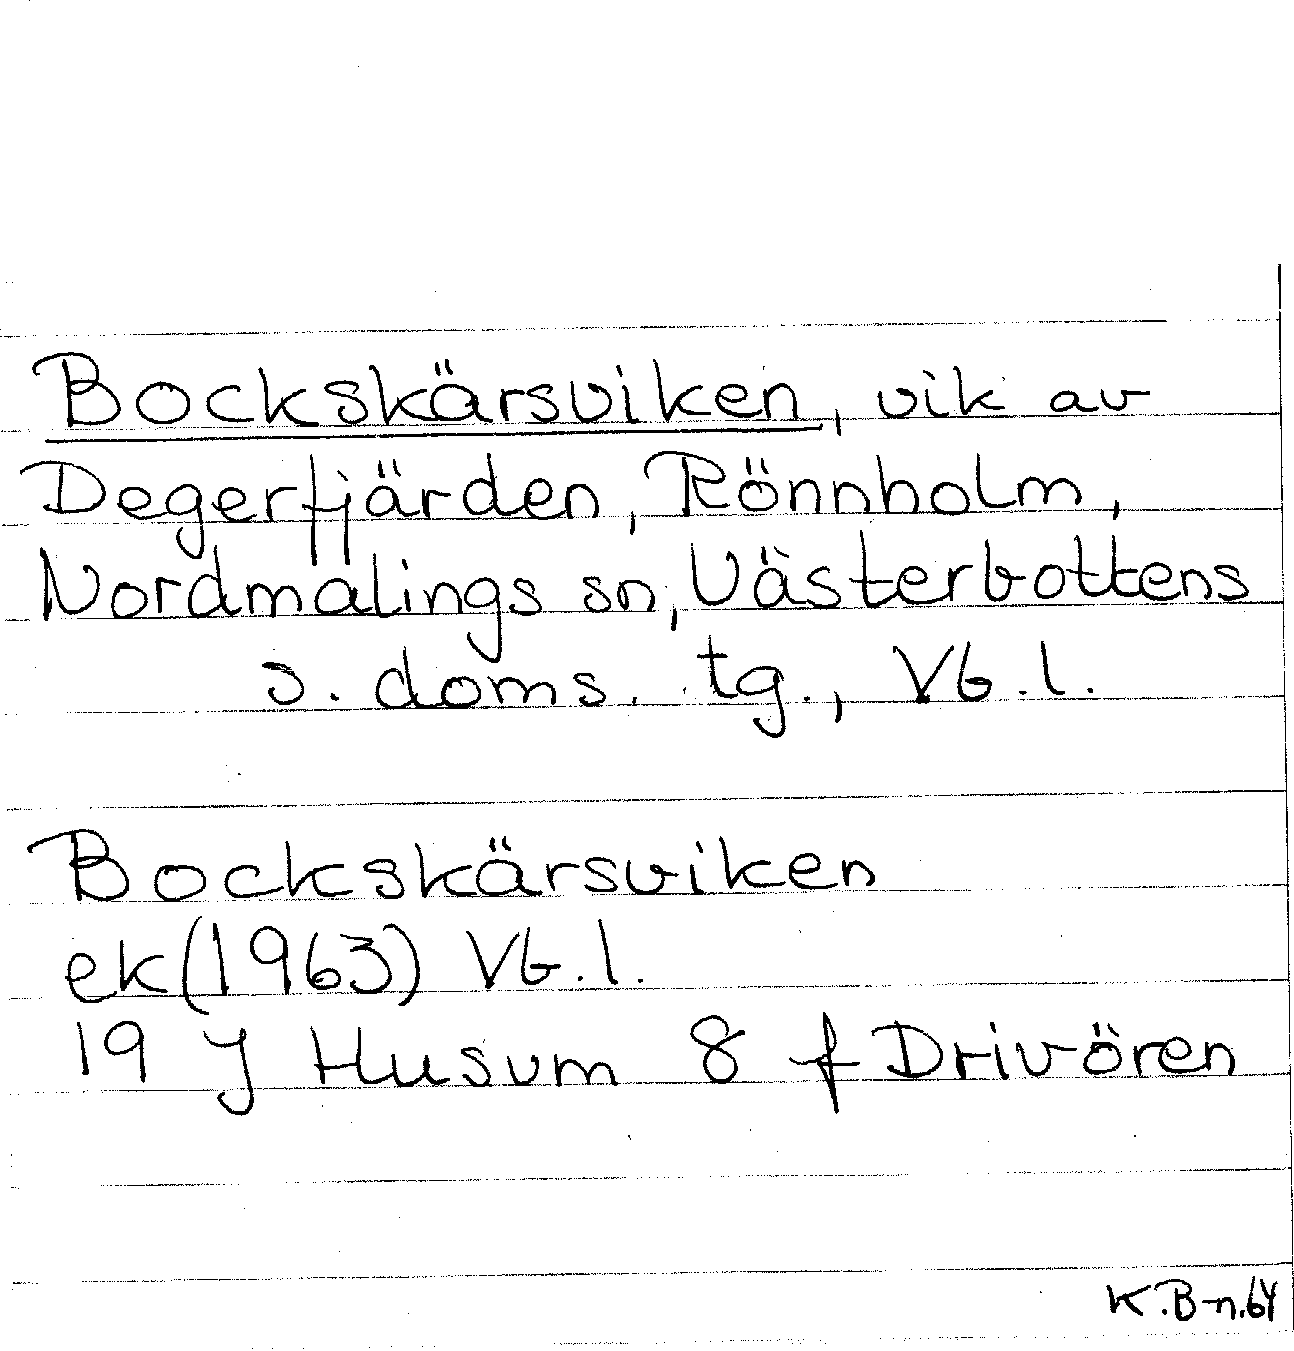 Bockskärsviken, vik av
Degerfjärden, Rönnholm,
Nordmalings sn, Västerbottens
s. doms. tg., Vb.l.
Bockskärsviken
ek(1963) Vb.l.
19 J Husum 8 f Drivören
K.B-n.64